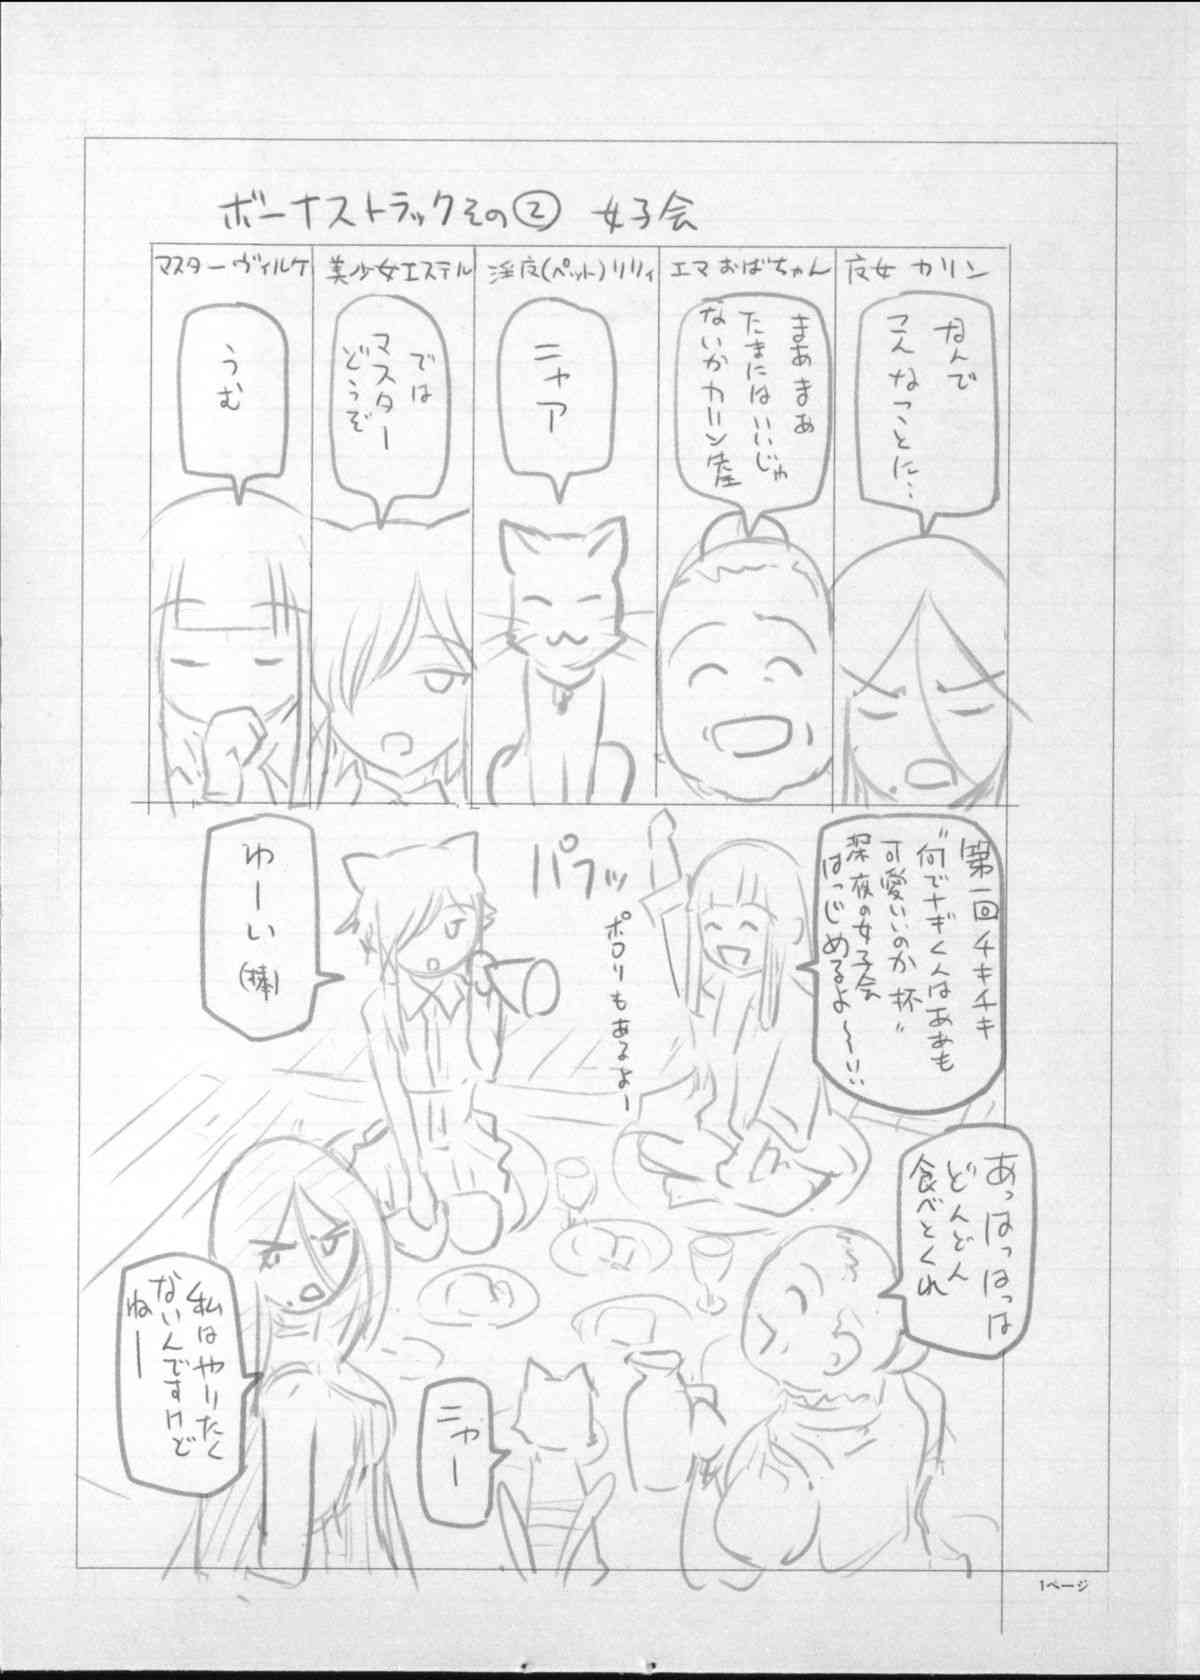 ボーナストラックその② 女子会
夜女 カリン
なんで
こんなことに…
エマおばちゃん
まあまあ
たまにはいいじゃ
ないかカリン産
淫夜(ペット)リリィ
ニャア
美少女エステル
では
マスター
どうぞ
マスターヴィルケ
うむ
第一回チキチキ
"何でナギくんはああも
可愛いのか杯"
深夜の女子会
はっじめるよ〜!!
パフッ
ポロリもあるよー
わーい
(棒)
あっはっはっは
どんどん
食べとくれ
私はやりたく
ないんですけど
ねー
ニャー
1ページ